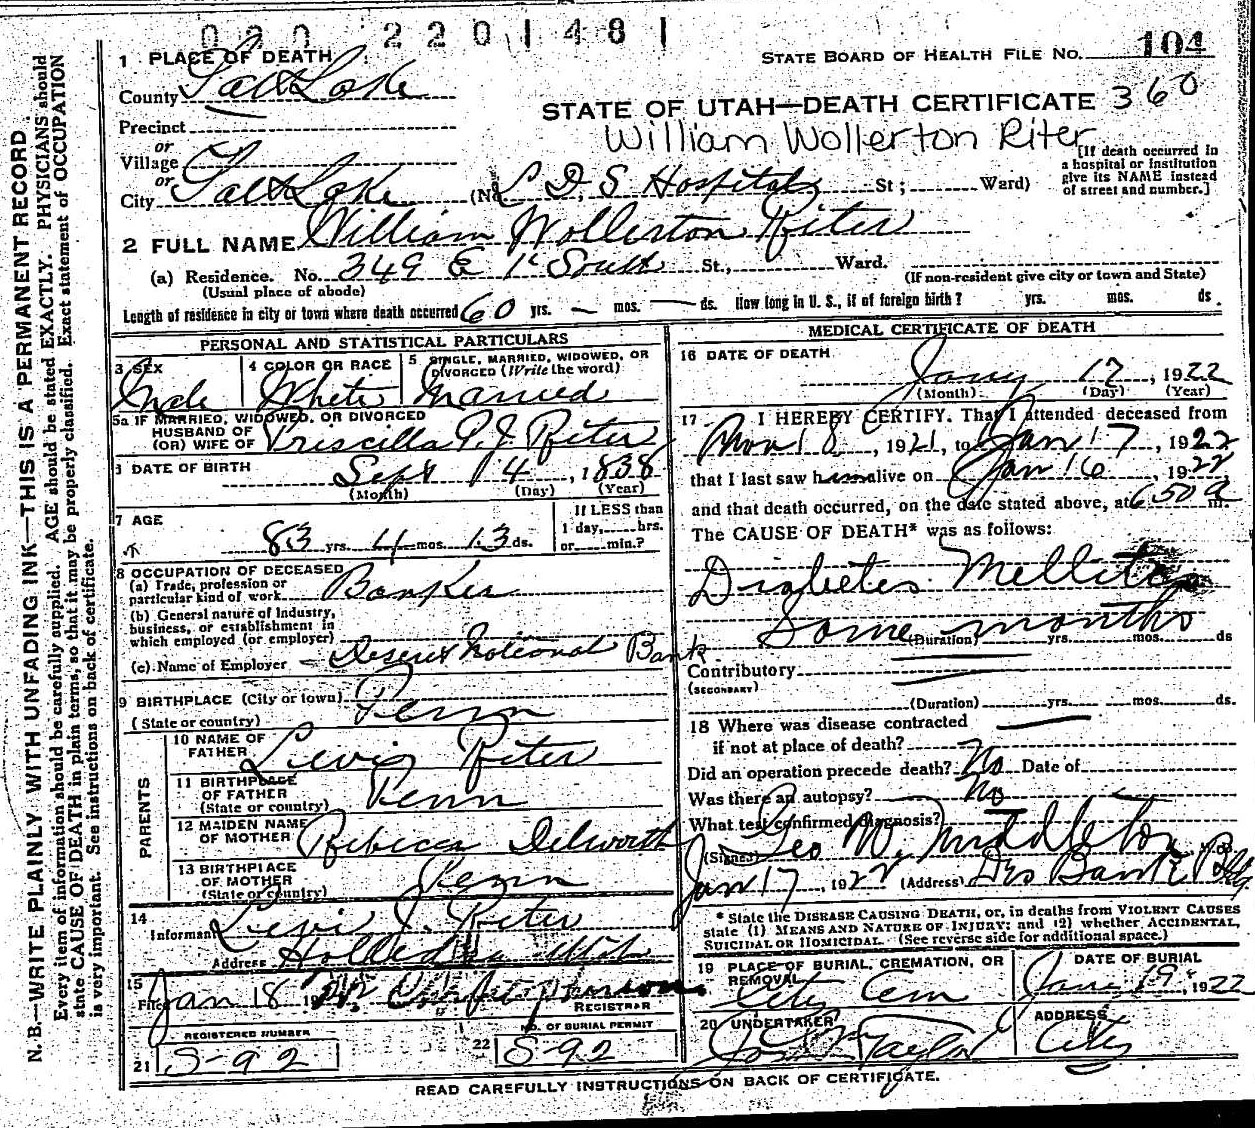 N. B.—WRITE PLAINLY WITH UNFADING INK—THIS IS A PERMANENT RECORD
Every item of information should be carefully supplied. AGE should be stated EXACTLY. PHYSICIANS should
state CAUSE OF DEATH in plain terms, so that it may be properly classified. Exact statement of OCCUPATION
is very important. See instructions on back of certificate.
2201481
STATE BOARD OF HEALTH FILE NO. 104
1 PLACE OF DEATH
County Salt Lake
STATE OF UTAH—DEATH CERTIFICATE 360
Precinct
or
William Wollerton Riter
Village
or
[If death occurred in
a hospital or institution
give its NAME instead
of street and number.]
City Salt Lake (No. L D S Hospital St; Ward)
2 FULL NAME William Wollerton Riter
(a) Residence. No. 349 E 1st South St., Ward.
(Usual place of abode) (If non-resident give city or town and State)
Length of residence in city or town where death occurred 60 yrs. — mos. — ds. How long in U. S., if of foreign birth? yrs. mos. ds
PERSONAL AND STATISTICAL PARTICULARS
3 SEX
Male
4 COLOR OR RACE
White
5 SINGLE, MARRIED, WIDOWED, OR
DIVORCED (Write the word)
Married
5a IF MARRIED, WIDOWED, OR DIVORCED
HUSBAND OF
(OR) WIFE OF Priscilla P. J. Riter
DATE OF BIRTH
Sept 4, 1838
(Month) (Day) (Year)
7 AGE
83 yrs. 4 mos. 13 ds.
If LESS than
1 day, hrs.
or min.?
8 OCCUPATION OF DECEASED
(a) Trade, profession or
particular kind of work Banker
(b) General nature of Industry,
business, or establishment in
which employed (or employer)
(c) Name of Employer Deseret National Bank
9 BIRTHPLACE (City or town)
(State or country) Penn
PARENTS
10 NAME OF
FATHER Levis Riter
11 BIRTHPLACE
OF FATHER
(State or country) Penn
12 MAIDEN NAME
OF MOTHER Rebecca Dilworth
13 BIRTHPLACE
OF MOTHER
(State or country) Penn
14
Informant Levi J. Riter
Address Holladay Utah
15
Filed Jan 18
REGISTRAR
REGISTERED NUMBER
21 S-92
NO. OF BURIAL PERMIT
22 S-92
MEDICAL CERTIFICATE OF DEATH
16 DATE OF DEATH
Jany 17, 1922
(Month) (Day) (Year)
17 I HEREBY CERTIFY. That I attended deceased from
Nov 18, 1921, to Jan 17, 1922
that I last saw him alive on Jan 16, 1922
and that death occurred, on the date stated above, at 650 a m.
The CAUSE OF DEATH* was as follows:
Diabetes Mellitus
Some months
(Duration) yrs. mos. ds
Contributory
(SECONDARY)
(Duration) yrs. mos. ds.
18 Where was disease contracted
if not at place of death?
Did an operation precede death? No Date of
Was there an autopsy? No
What test confirmed diagnosis?
(Signed) Geo W. Middleton
Jan 17, 1922 (Address) Des Bank Bldg
* State the DISEASE CAUSING DEATH, or, in deaths from VIOLENT CAUSES
state (1) MEANS AND NATURE OF INJURY; and (2) whether ACCIDENTAL,
SUICIDAL OR HOMICIDAL. (See reverse side for additional space.)
19 PLACE OF BURIAL, CREMATION, OR
REMOVAL
City Cem
DATE OF BURIAL
Jany 19, 1922
20 UNDERTAKER
Taylor
ADDRESS
City
READ CAREFULLY INSTRUCTIONS ON BACK OF CERTIFICATE.